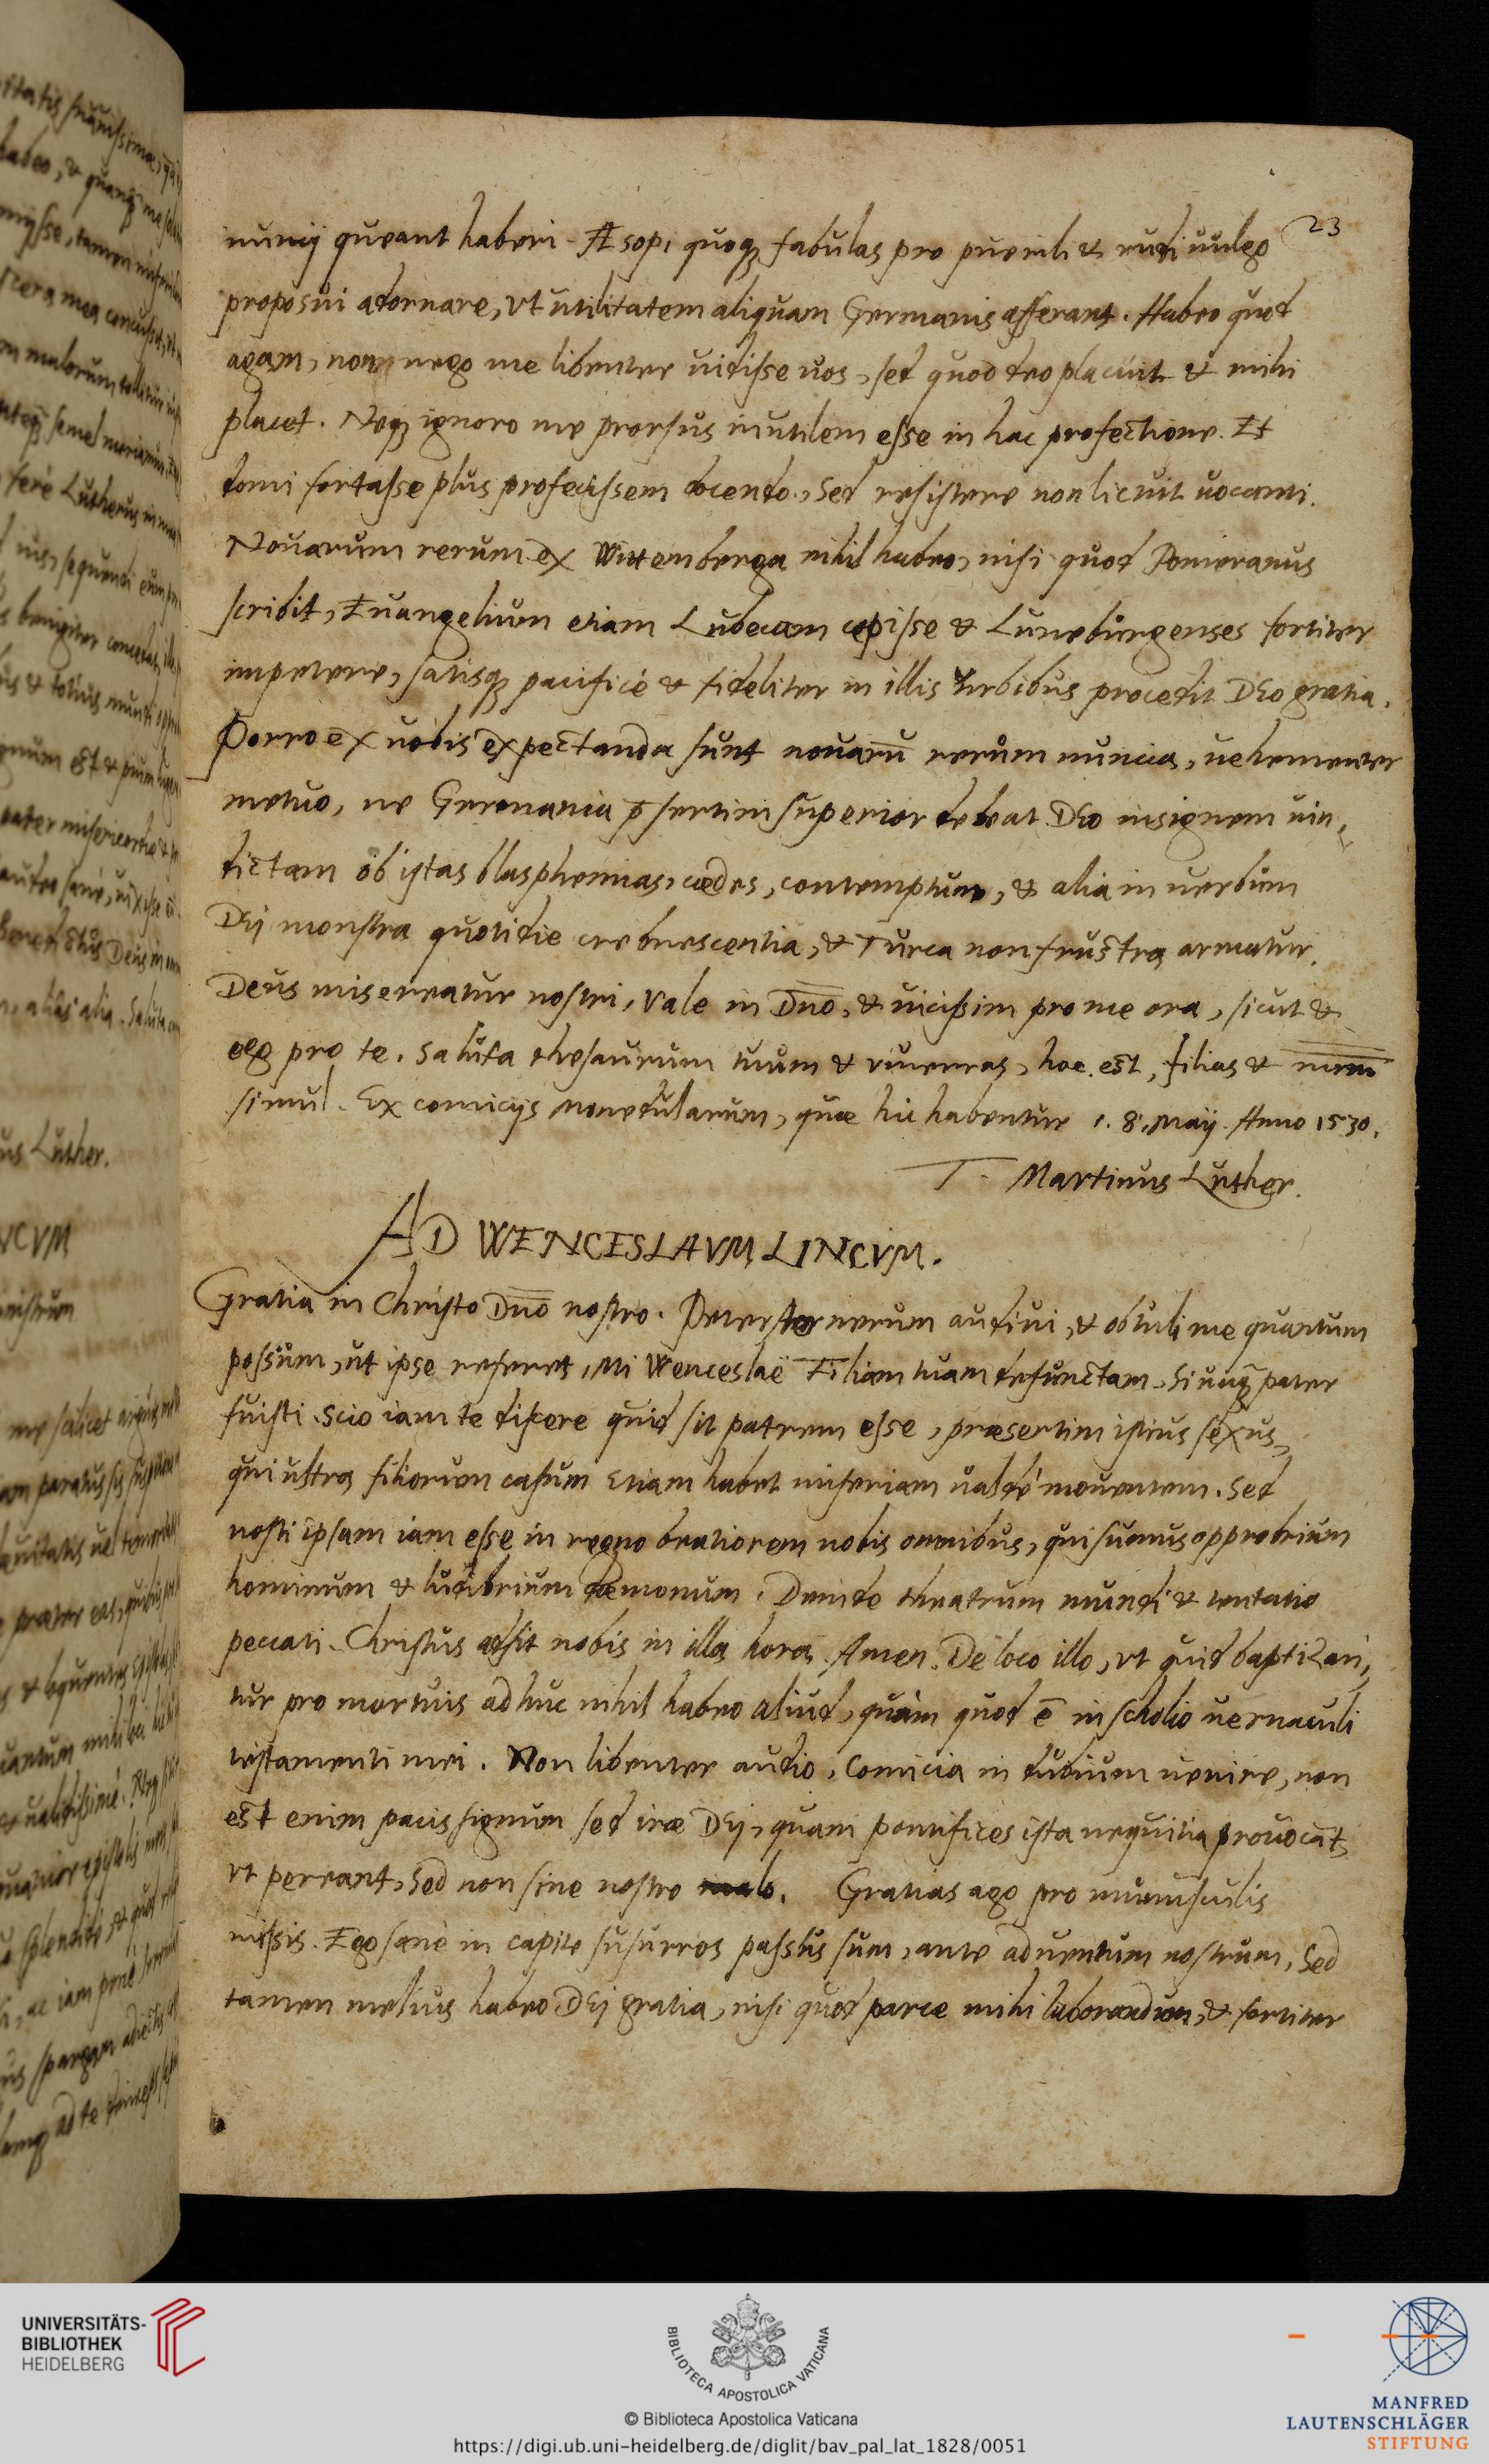 23
nuncij queant haberi. Æsopi quoqꝫ fabulas pro puerili & rudi uulgo
proposui adornare, vt utilitatem aliquam Germanis afferant. Habeo quod
agam, non nego me libenter uidisse uos, sed quod deo placuit & mihi
placet. Neqꝫ ignoro me prorsus inutilem esse in hac profectione. Et
domi fortasse plus profecissem docendo, Sed resistere non licuit uocanti.
Nouarum rerum ex Wittemberga nihil habeo, nisi quod Pomeranus
scribit, Euangelium etiam Lubecam cepisse & Luneburgenses fortiter
impetere, satisqꝫ pacificè & fideliter in illis vrbibus procedit Deo gratia.
Porro ex uobis expectanda sunt nouarū rerum nuncia, uehementer
metuo, ne Germania p̄sertim superior debeat Deo insignem uin=
dictam ob istas blasphemias, cædes, contemptum, & alia in uerbum
Dei monstra quotidie crebrescentia, & Turca non frustra armatur.
Deus misereatur nostri, Vale in Dn̄o, & uicissim pro me ora, sicut &
ego pro te. Saluta thesaurum tuum & viuerras, hoc est, filias &
simul. Ex comicijs monedularum, quæ hic habentur 1. 8. Maij Anno 1530.
T. Martinus Luther.
AD WENCESLAVM LINCVM.
Gratia in Christo Dn̄o nostro. Peter audiui, & obtuli me quantum
possum, ut ipse referet, Mi Wenceslaë Filiam tuam defunctam, Si unqꝫ pater
fuisti. Scio iam te discere quid sit patrem esse, præsertim istius sexus,
qui ultra filiorum casum etiam habet miseriam ualdè mouentem. Sed
nosti ipsam iam esse in regno beatiorem nobis omnibus, qui sumus opprobrium
hominum & ludibrium dæmonum. Deinde theatrum mundi & tentatio
peccati. Christus adsit nobis in illa hora Amen. De loco illo, vt quid baptizan=
tur pro mortuis adhuc nihil habeo aliud, quàm quod ē in scholio uernaculi
testamenti mei. Non libenter audio, Comicia in dubium uenire, non
est enim pacis signum sed iræ Dei, quam pontifices ista nequitia prouocāt,
vt pereant, Sed non sine nostro malo. Gratias ago pro munusculis
missis. Ego sanè in capite susurros passus sum, ante aduentum nostrum, Sed
tamen melius habeo Dei gratia, nisi quod parce mihi laborandum, & fortiter
UNIVERSITÄTS-
BIBLIOTHEK
HEIDELBERG
BIBLIOTECA APOSTOLICA VATICANA
© Biblioteca Apostolica Vaticana
https://digi.ub.uni-heidelberg.de/diglit/bav_pal_lat_1828/0051
MANFRED
LAUTENSCHLÄGER
STIFTUNG